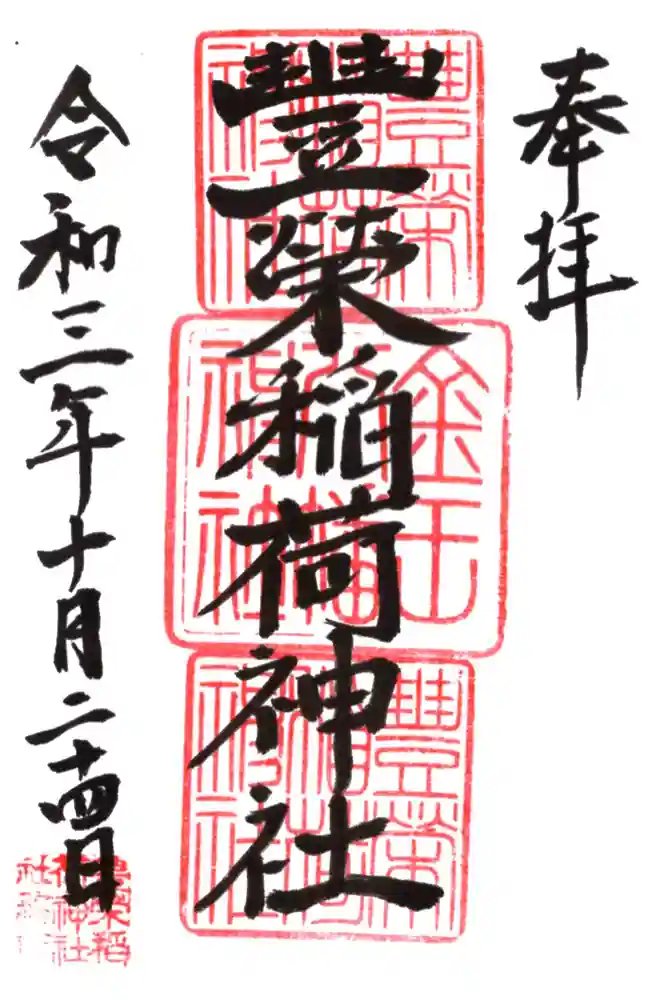 奉拝
豐榮稲荷神社
豊栄稲荷神社
金王八幡神社
豊栄稲荷神社
令和三年十月二十四日